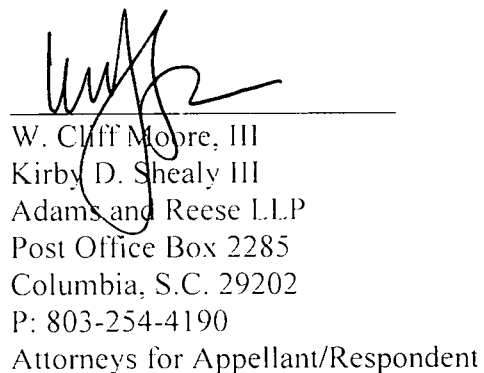 W. Cliff Moore, III
Kirby D. Shealy III
Adams and Reese LLP
Post Office Box 2285
Columbia, S.C. 29202
P: 803-254-4190
Attorneys for Appellant/Respondent